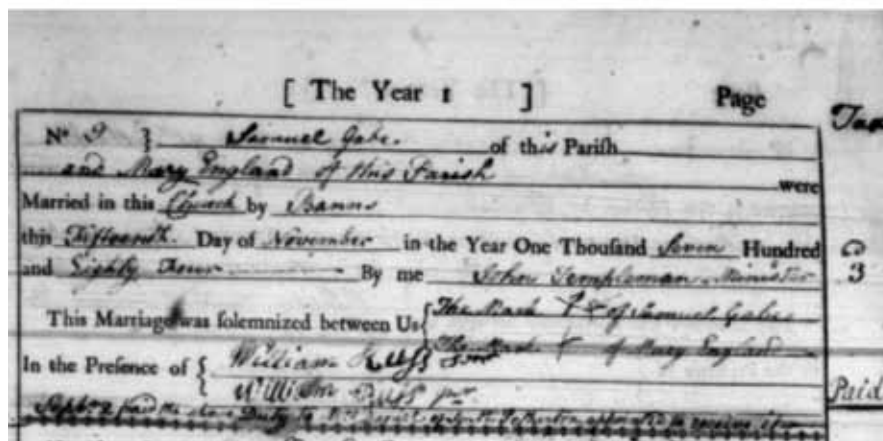 [ The Year 1 ] Page
Tax
No 9 } Samuel Gabe. of this Parish
and Mary England of this Parish were
Married in this Church by Banns
this Fifteenth Day of November in the Year One Thousand Seven Hundred
and Eighty Four By me John Templeman Minister
3
This Marriage was solemnized between Us { The Mark of Samuel Gabe
The Mark of Mary England
In the Presence of { William
William
Paid
paid the above Duty to